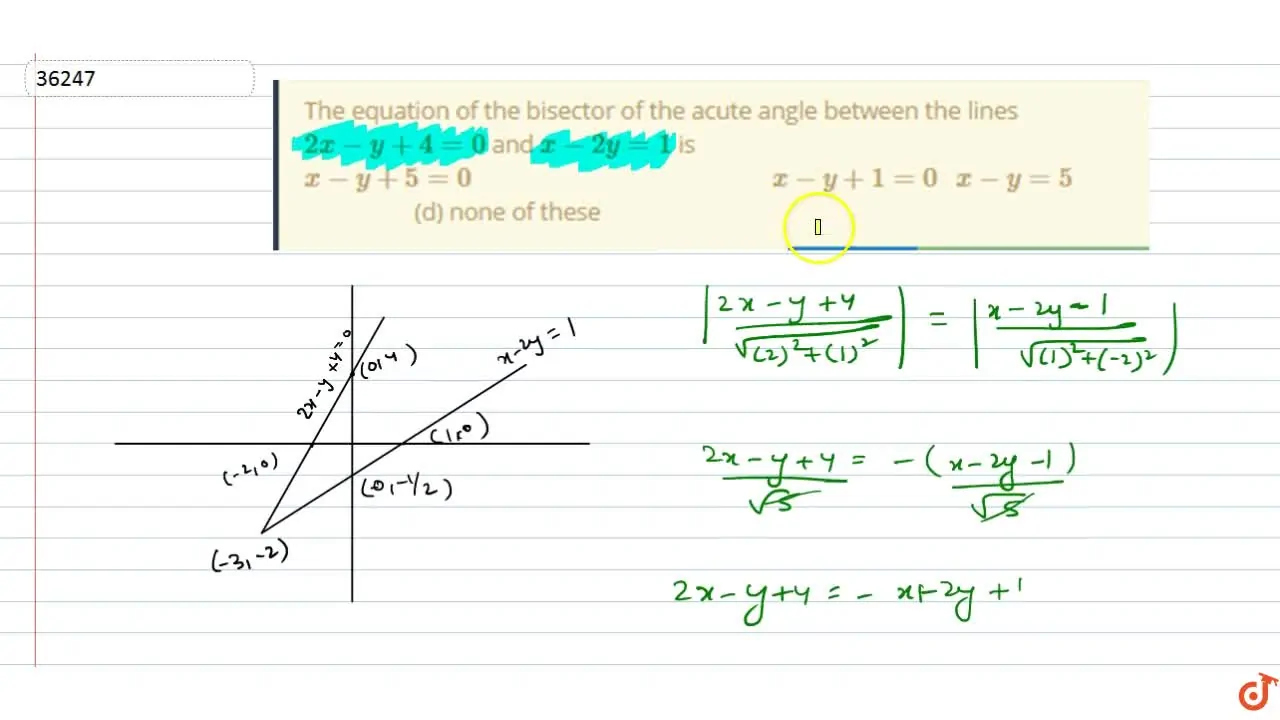 36247
The equation of the bisector of the acute angle between the lines
2x − y + 4 = 0 and x − 2y = 1 is
x − y + 5 = 0 x − y + 1 = 0 x − y = 5
(d) none of these
2x-y+4=0
(0,4)
x-2y=1
(-2,0)
(1,0)
(0,-1/2)
(-3,-2)
|2x-y+4/√(2)²+(1)²| = |x-2y-1/√(1)²+(-2)²|
2x-y+4/√5 = -(x-2y-1)/√5
2x-y+4 = - x+2y+1